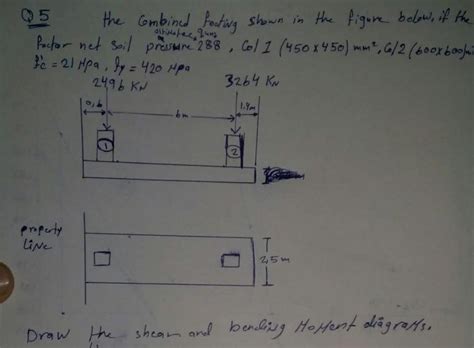 Q5 the Combined footing shown in the figure below, if the
ultimate gross
factor net soil pressure 288, Col I (450x450) mm², C/2 (600x600)
f'c = 21 Mpa, fy = 420 Mpa
2496 KN 3264 KN
6m 1.4m
1 2
property
Line
2,5m
Draw the shear and bending Moment diagrams.